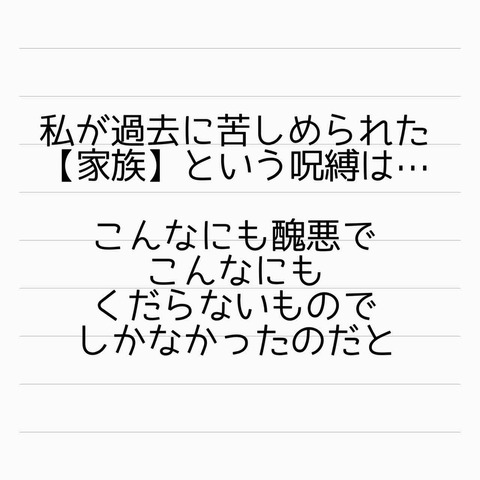 私が過去に苦しめられた
【家族】という呪縛は…
こんなにも醜悪で
こんなにも
くだらないもので
しかなかったのだと